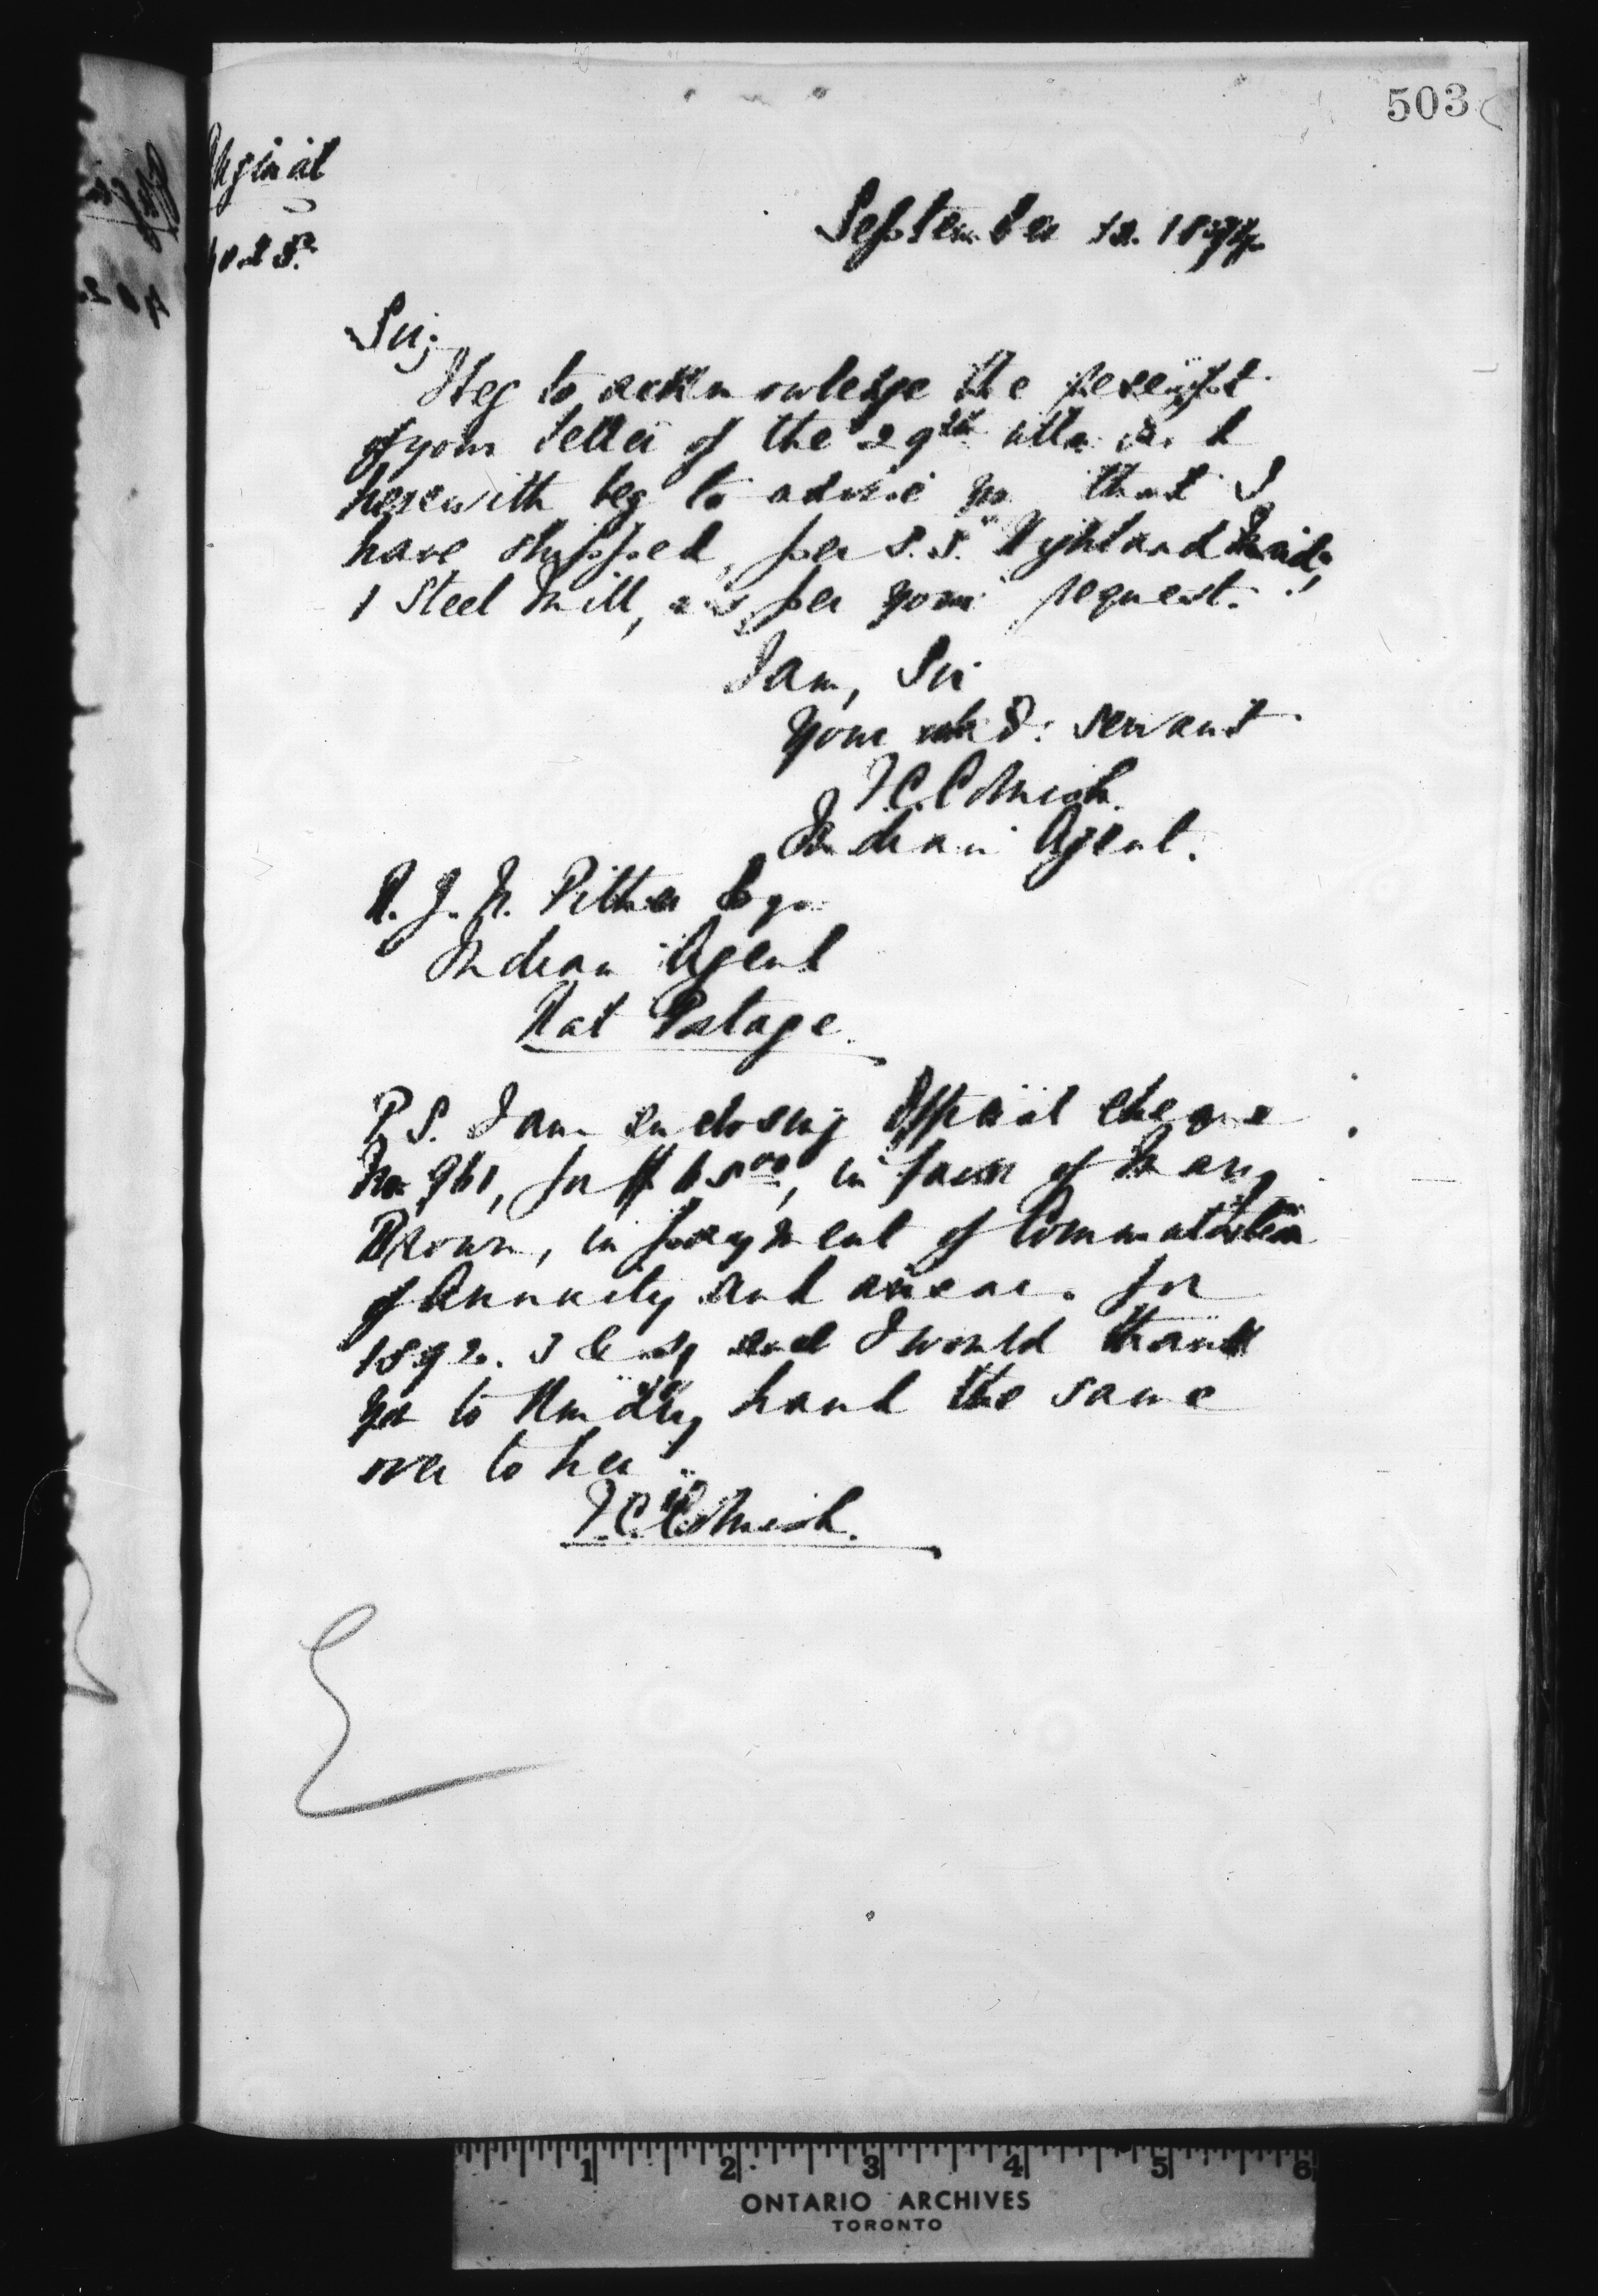 503
September 12. 1894
Sir;
I beg to acknowledge the receipt
of your letter of the 29th ulto. &
herewith beg to advise you that I
have shipped, per S.S. "Highland Maid,"
1 Steel Mill, as per your request.
I am, Sir
Your obed: servant
F.C. Cornish
Indian Agent.
R. J. N. Pither Esq.
Indian Agent
Rat Portage.
P.S. I am enclosing Official cheque
No 961, for $65.00, in favor of Mary
Brown, in payment of Commutation
of Annuity and arrears for
1892. 3 & 4 and I would thank
you to kindly hand the same
over to her
F.C. Cornish.
1 2 3 4 5 6
ONTARIO ARCHIVES
TORONTO